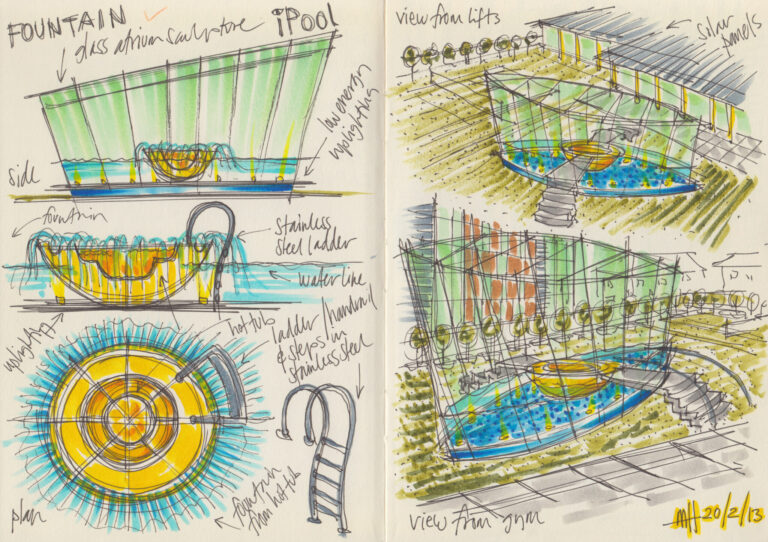 FOUNTAIN
iPool
glass atrium sculpture
low energy
uplighting
side
fountain
stainless
steel ladder
water line
uplighting
hot tub
ladder/handrail
& steps in
stainless steel
plan
fountain
from hot tub
view from lifts
solar
panels
view from gym
MH 20/2/13